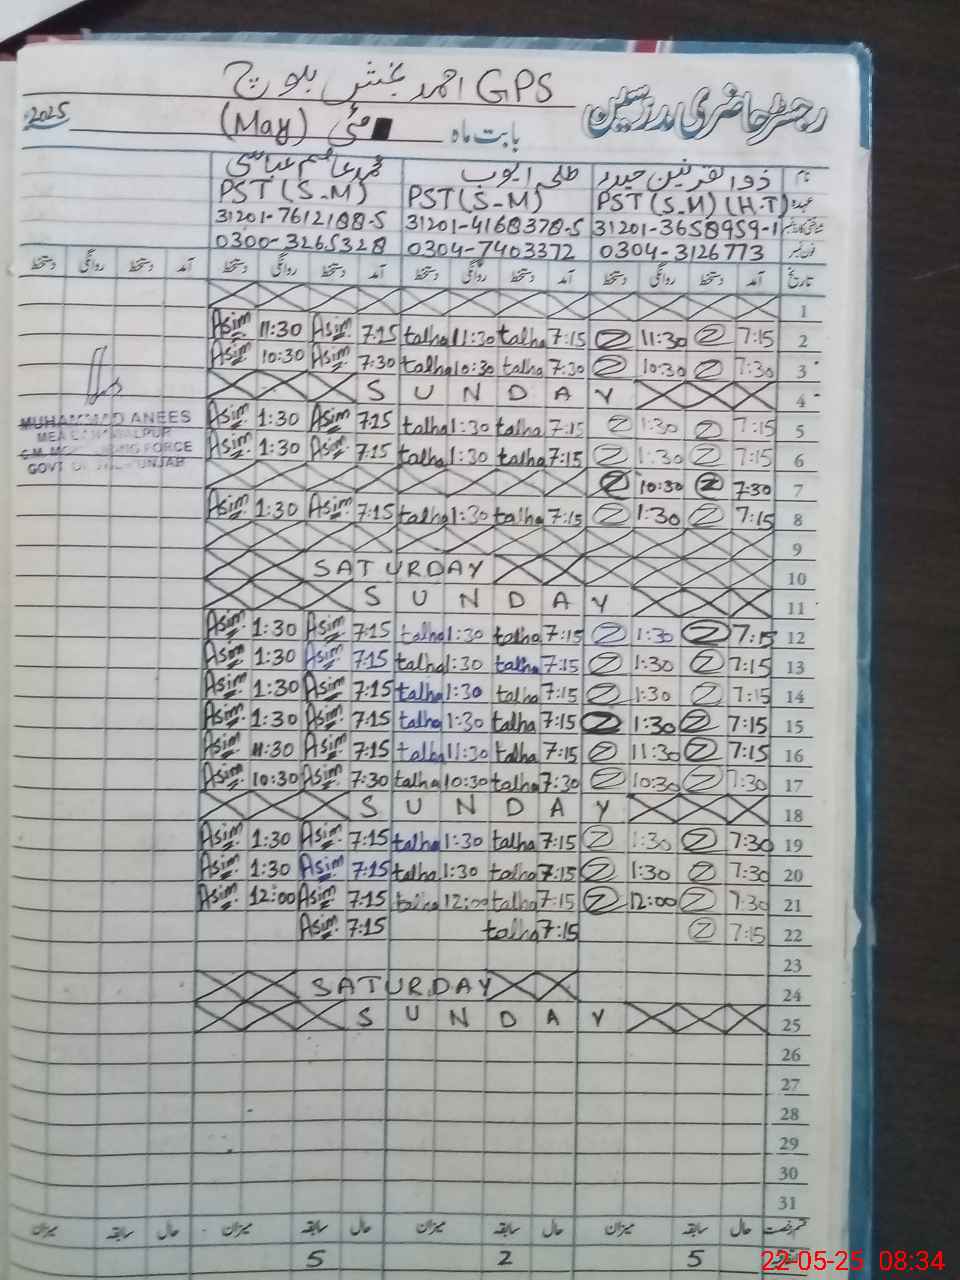 رجسٹر حاضری مدرسین
GPS احمد بخش بلوچ
بابت ماہ مئی (May) 2025
نام ذوالقرنین حیدر طلحہ ایوب محمد عاصم عباسی
عہدہ PST (S.M) (H.T) PST (S.M) PST (S.M)
31201-3658959-1 31201-4168378-5 31201-7612188-5
0304-3126773 0304-7403372 0300-3265328
تاریخ آمد دستخط روانگی دستخط آمد دستخط روانگی دستخط آمد دستخط روانگی دستخط آمد دستخط روانگی دستخط
1
2 7:15 Z 11:30 Z 7:15 talha 11:30 talha 7:15 Asim 11:30 Asim
3 7:30 Z 10:30 Z 7:30 talha 10:30 talha 7:30 Asim 10:30 Asim
4 S U N D A Y
5 7:15 Z 1:30 Z 7:15 talha 1:30 talha 7:15 Asim 1:30 Asim
6 7:15 Z 1:30 Z 7:15 talha 1:30 talha 7:15 Asim 1:30 Asim
7 7:30 Z 10:30 Z
8 7:15 Z 1:30 Z 7:15 talha 1:30 talha 7:15 Asim 1:30 Asim
9
10 SATURDAY
11 S U N D A Y
12 7:15 Z 1:30 Z 7:15 talha 1:30 talha 7:15 Asim 1:30 Asim
13 7:15 Z 1:30 Z 7:15 talha 1:30 talha 7:15 Asim 1:30 Asim
14 7:15 Z 1:30 Z 7:15 talha 1:30 talha 7:15 Asim 1:30 Asim
15 7:15 Z 1:30 Z 7:15 talha 1:30 talha 7:15 Asim 1:30 Asim
16 7:15 Z 11:30 Z 7:15 talha 11:30 talha 7:15 Asim 11:30 Asim
17 7:30 Z 10:30 Z 7:30 talha 10:30 talha 7:30 Asim 10:30 Asim
18 S U N D A Y
19 7:30 Z 1:30 Z 7:15 talha 1:30 talha 7:15 Asim 1:30 Asim
20 7:30 Z 1:30 Z 7:15 talha 1:30 talha 7:15 Asim 1:30 Asim
21 7:30 Z 12:00 Z 7:15 talha 12:00 talha 7:15 Asim 12:00 Asim
22 7:15 Z 7:15 talha 7:15 Asim
23
24 SATURDAY
25 S U N D A Y
26
27
28
29
30
31
حال سابقہ میزان حال سابقہ میزان حال سابقہ میزان حال سابقہ میزان
5 2 5
MUHAMMAD ANEES
MEA
FORCE
GOVT
22-05-25 08:34